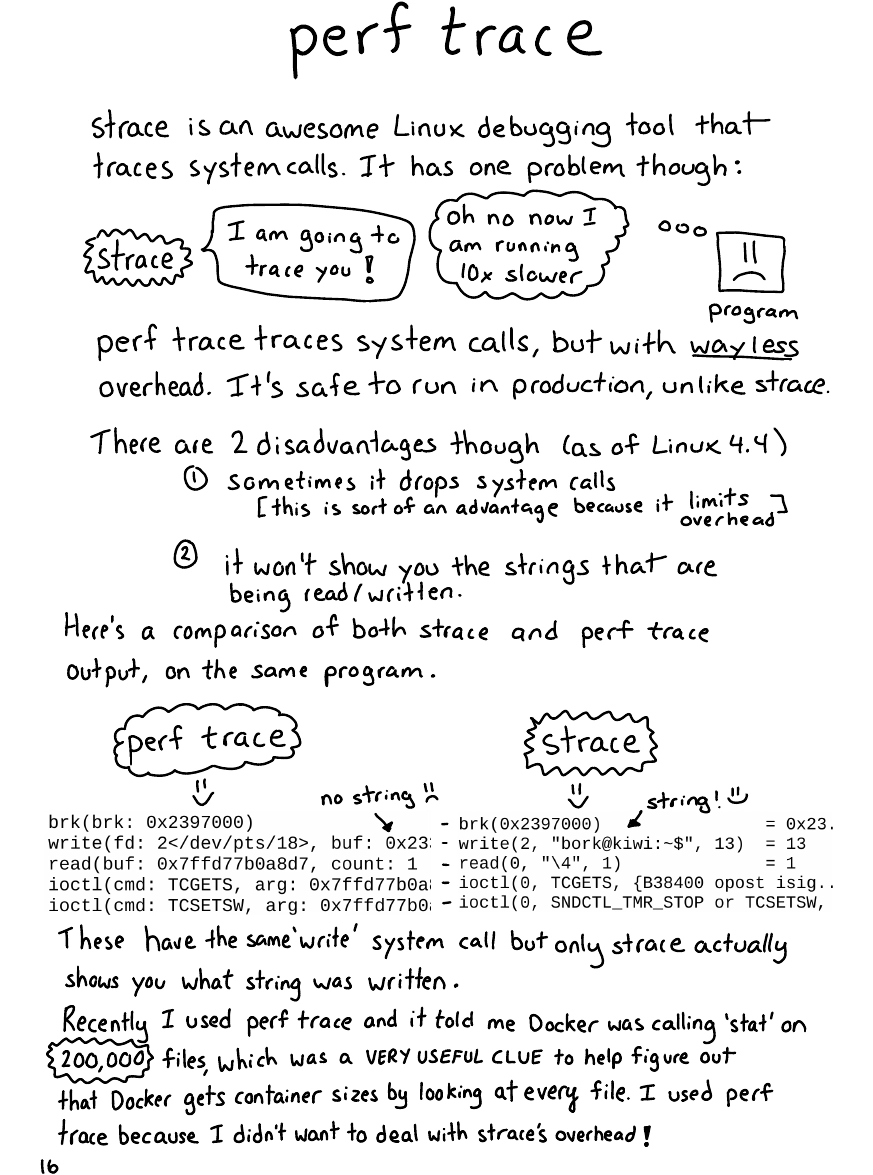 perf trace
strace is an awesome Linux debugging tool that
traces system calls. It has one problem though:
strace
I am going to
trace you!
oh no now I
am running
10x slower
program
perf trace traces system calls, but with way less
overhead. It's safe to run in production, unlike strace.
There are 2 disadvantages though (as of Linux 4.4)
① sometimes it drops system calls
[this is sort of an advantage because it limits
overhead]
② it won't show you the strings that are
being read/written.
Here's a comparison of both strace and perf trace
output, on the same program.
perf trace
no string
brk(brk: 0x2397000)
write(fd: 2</dev/pts/18>, buf: 0x23
read(buf: 0x7ffd77b0a8d7, count: 1
ioctl(cmd: TCGETS, arg: 0x7ffd77b0a
ioctl(cmd: TCSETSW, arg: 0x7ffd77b0
strace
string!
- brk(0x2397000) = 0x23.
- write(2, "bork@kiwi:~$", 13) = 13
- read(0, "\4", 1) = 1
- ioctl(0, TCGETS, {B38400 opost isig..
- ioctl(0, SNDCTL_TMR_STOP or TCSETSW,
These have the same 'write' system call but only strace actually
shows you what string was written.
Recently I used perf trace and it told me Docker was calling 'stat' on
200,000 files, which was a VERY USEFUL CLUE to help figure out
that Docker gets container sizes by looking at every file. I used perf
trace because I didn't want to deal with strace's overhead!
16